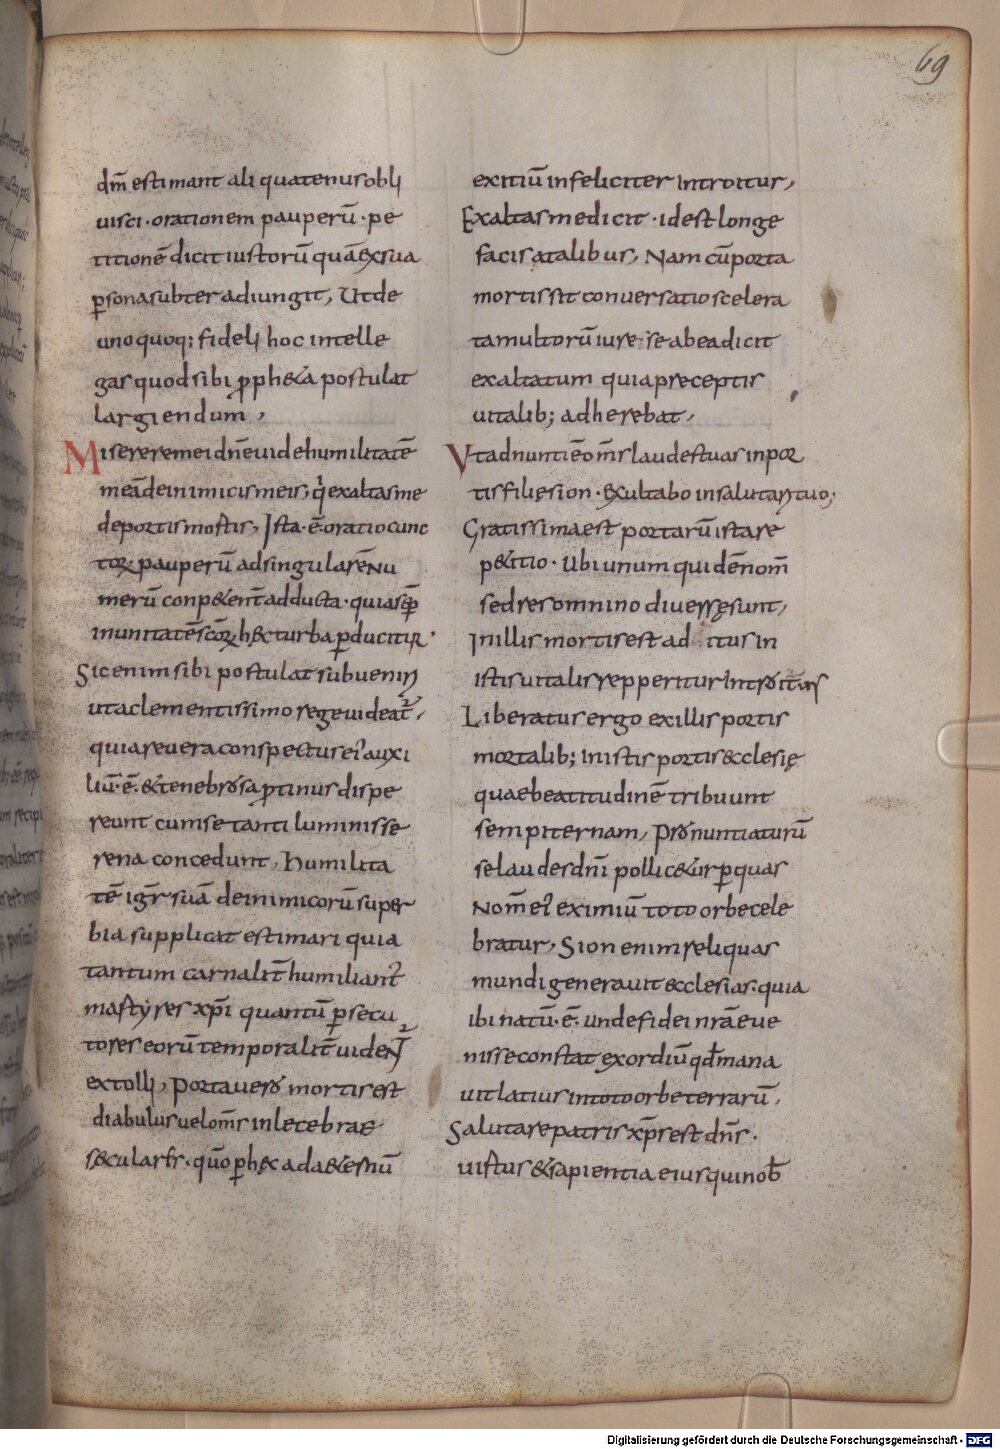 69
dm̄ estimant ali quatenus obli
uisci · orationem pauperū · pe
titionē dicit iustorū quā ex sua
p̱sona subter adiungit, Ut de
uno quoq; fideli hoc intelle
gas quod sibi p̱ph&a postulat
largiendum ,
Miserere mei dn̄e uide humilitatē
meā de inimicis meis, q̄ exaltas me
de portis mortis, Ista · ē · oratio cunc
toꝝ pauperū ad singularē nu
merū conpet&ent̄ adducta · quia sēp̱
in unitatē sc̄oꝝ hęc turba p̱ducitur ·
Sic enim sibi postulat subueniri
ut a clementissimo rege uideat᷑,
quia reuera conspectus eiꝰ auxi
liū · ē · & tenebrosa p̱tinus dispe
reunt cum se tanti luminis se
rena concedunt, humilita
tē igr̄ suā de inimicorū super
bia supplicat estimari quia
tantum carnalit̄ humiliant᷑
martyres xp̄i quantū p̱secu
tores eorū temporalit̄ uident᷑
extolli, Porta uero mortis est
diabulus uel om̄s inlecebrae
s&culares · quō p̱ hęc ad a&ernū
exitiū infeliciter introitur,
Exaltas me dicit · id est longe
facis a talibus, Nam cū porta
mortis sit conuersatio scelera
ta multorū iure se ab ea dicit
exaltatum quia preceptis
uitalib; adherebat,
Vt adnuntiē om̄s laudes tuas in por
tis filię sion · exultabo in salutari tuo;
Gratissima est portarū ista re
p&itio · Ubi unum quidē nom̄
sed res omnino diuersę sunt,
In illis mortis est ad itus in
istis uitalis repperitur introitus
Liberatus ergo ex illis portis
mortalib; in istis portis &cclesię
quae beatitudinē tribuunt
sempiternam, Pronuntiaturū
se laudes dn̄i pollic&ur p̱ quas
Nom̄ eiꝰ eximiū toto orbe cele
bratur, Sion enim reliquas
mundi generauit &cclesias · quia
ibi natū · ē · unde fidei nrāe ue
nisse constat exordiū qd̄ mana
uit latius in toto orbe terrarū,
Salutare patris xp̄s est dn̄s ·
uirtus & sapientia eius qui nob̄
Digitalisierung gefördert durch die Deutsche Forschungsgemeinschaft - DFG